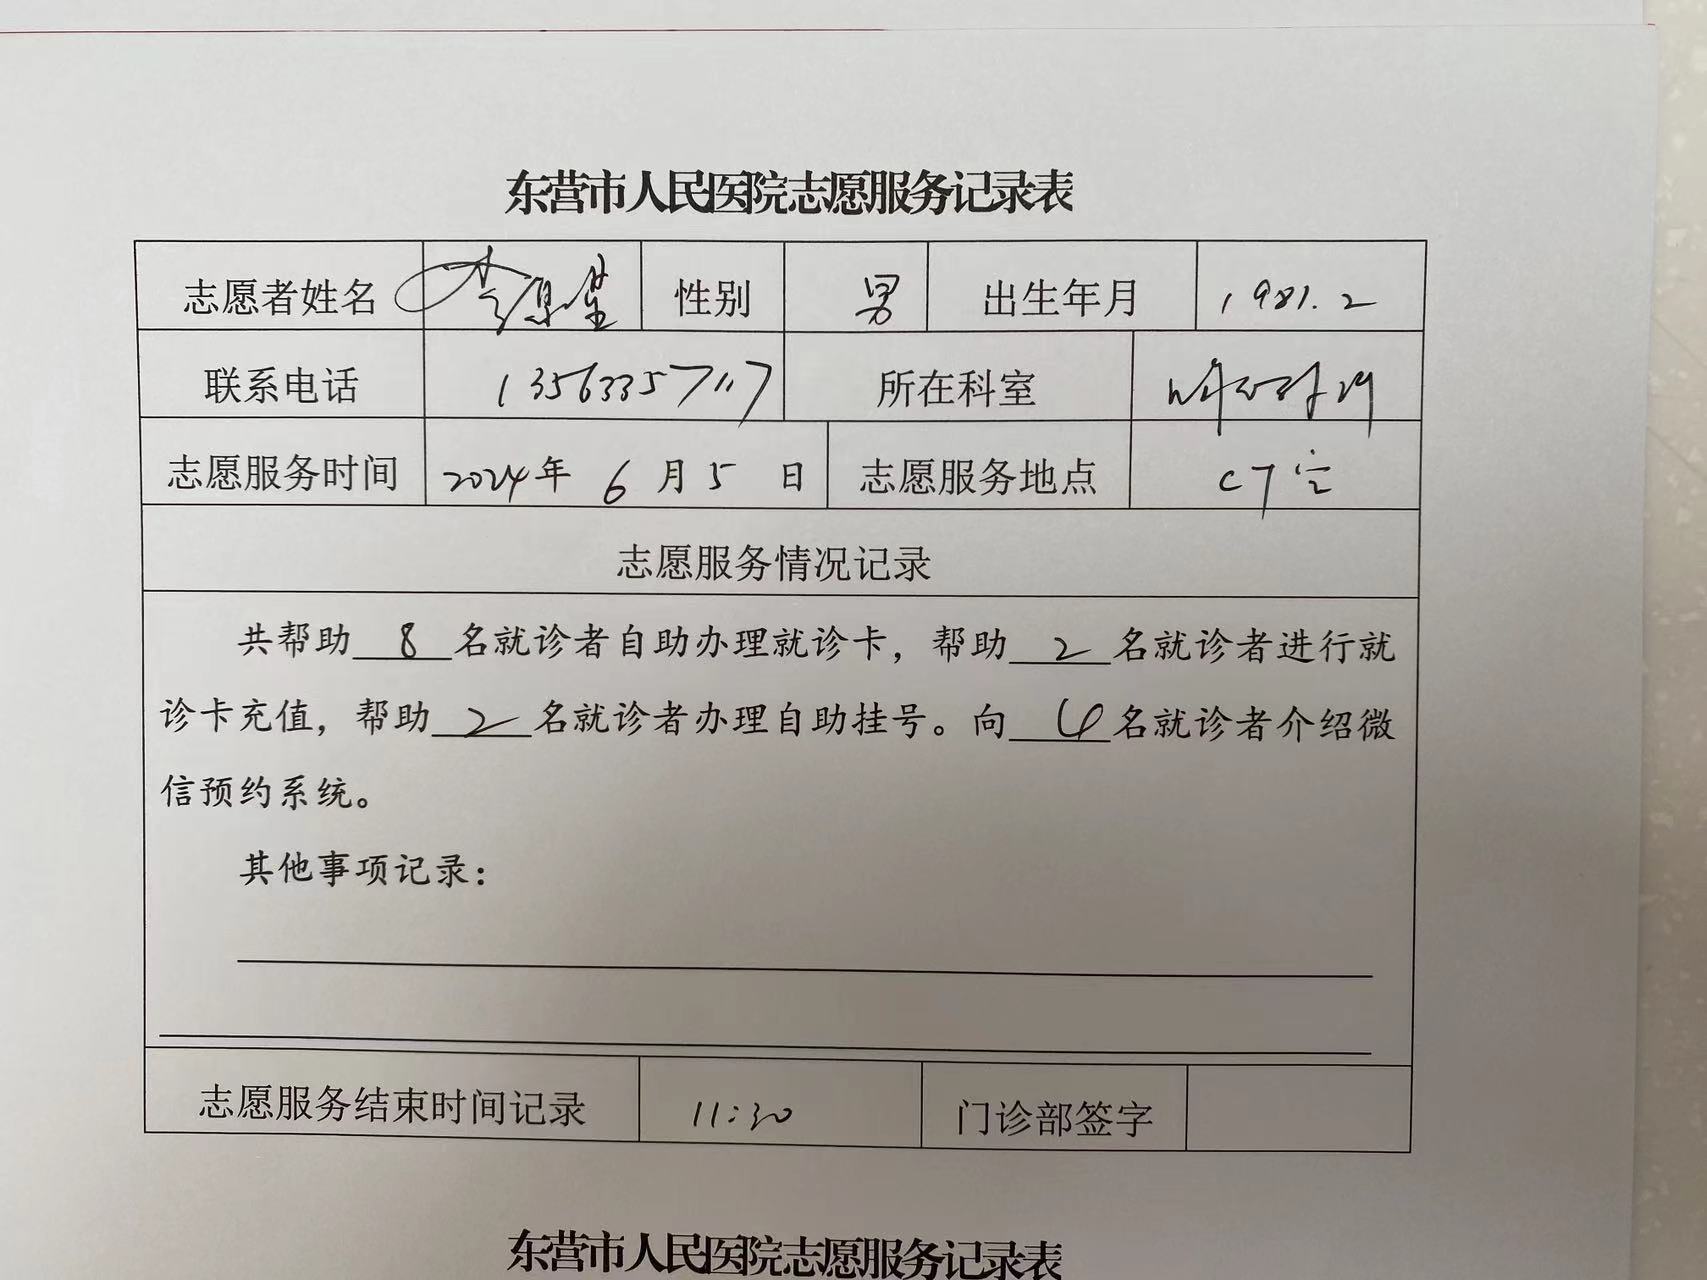 东营市人民医院志愿服务记录表
志愿者姓名 李 性别 男 出生年月 1981.2
联系电话 13563357117 所在科室
志愿服务时间 2024年 6 月 5 日 志愿服务地点 CT室
志愿服务情况记录
共帮助 8 名就诊者自助办理就诊卡，帮助 2 名就诊者进行就
诊卡充值，帮助 2 名就诊者办理自助挂号。向 4 名就诊者介绍微
信预约系统。
其他事项记录：
志愿服务结束时间记录 11:30 门诊部签字
东营市人民医院志愿服务记录表